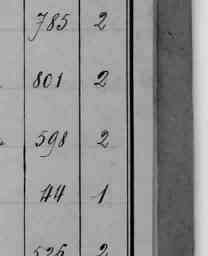 785 2
801 2
598 2
44 1
526 2